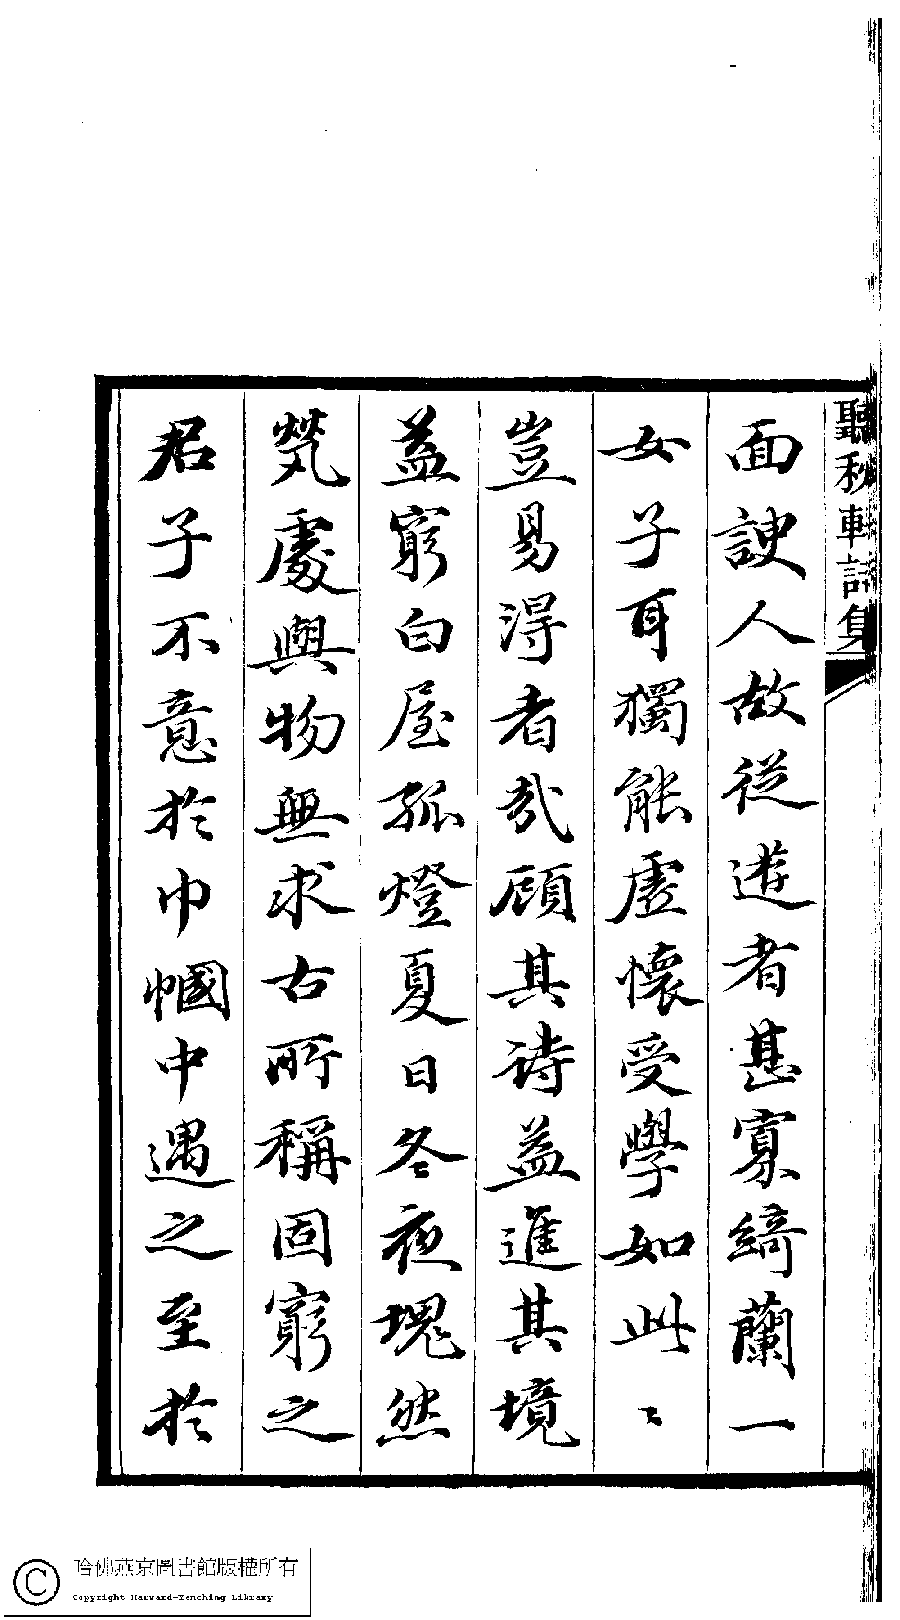 聽秋軒詩集
面諛人故從遊者甚寡綺蘭一
女子耳獨能虛懷受學如此〻
豈易得者哉顧其詩益進其境
益窮白屋孤燈夏日冬夜塊然
煢處與物無求古所稱固窮之
君子不意於巾幗中遇之至於
哈佛燕京圖書館版權所有
Copyright Harvard-Yenching Library